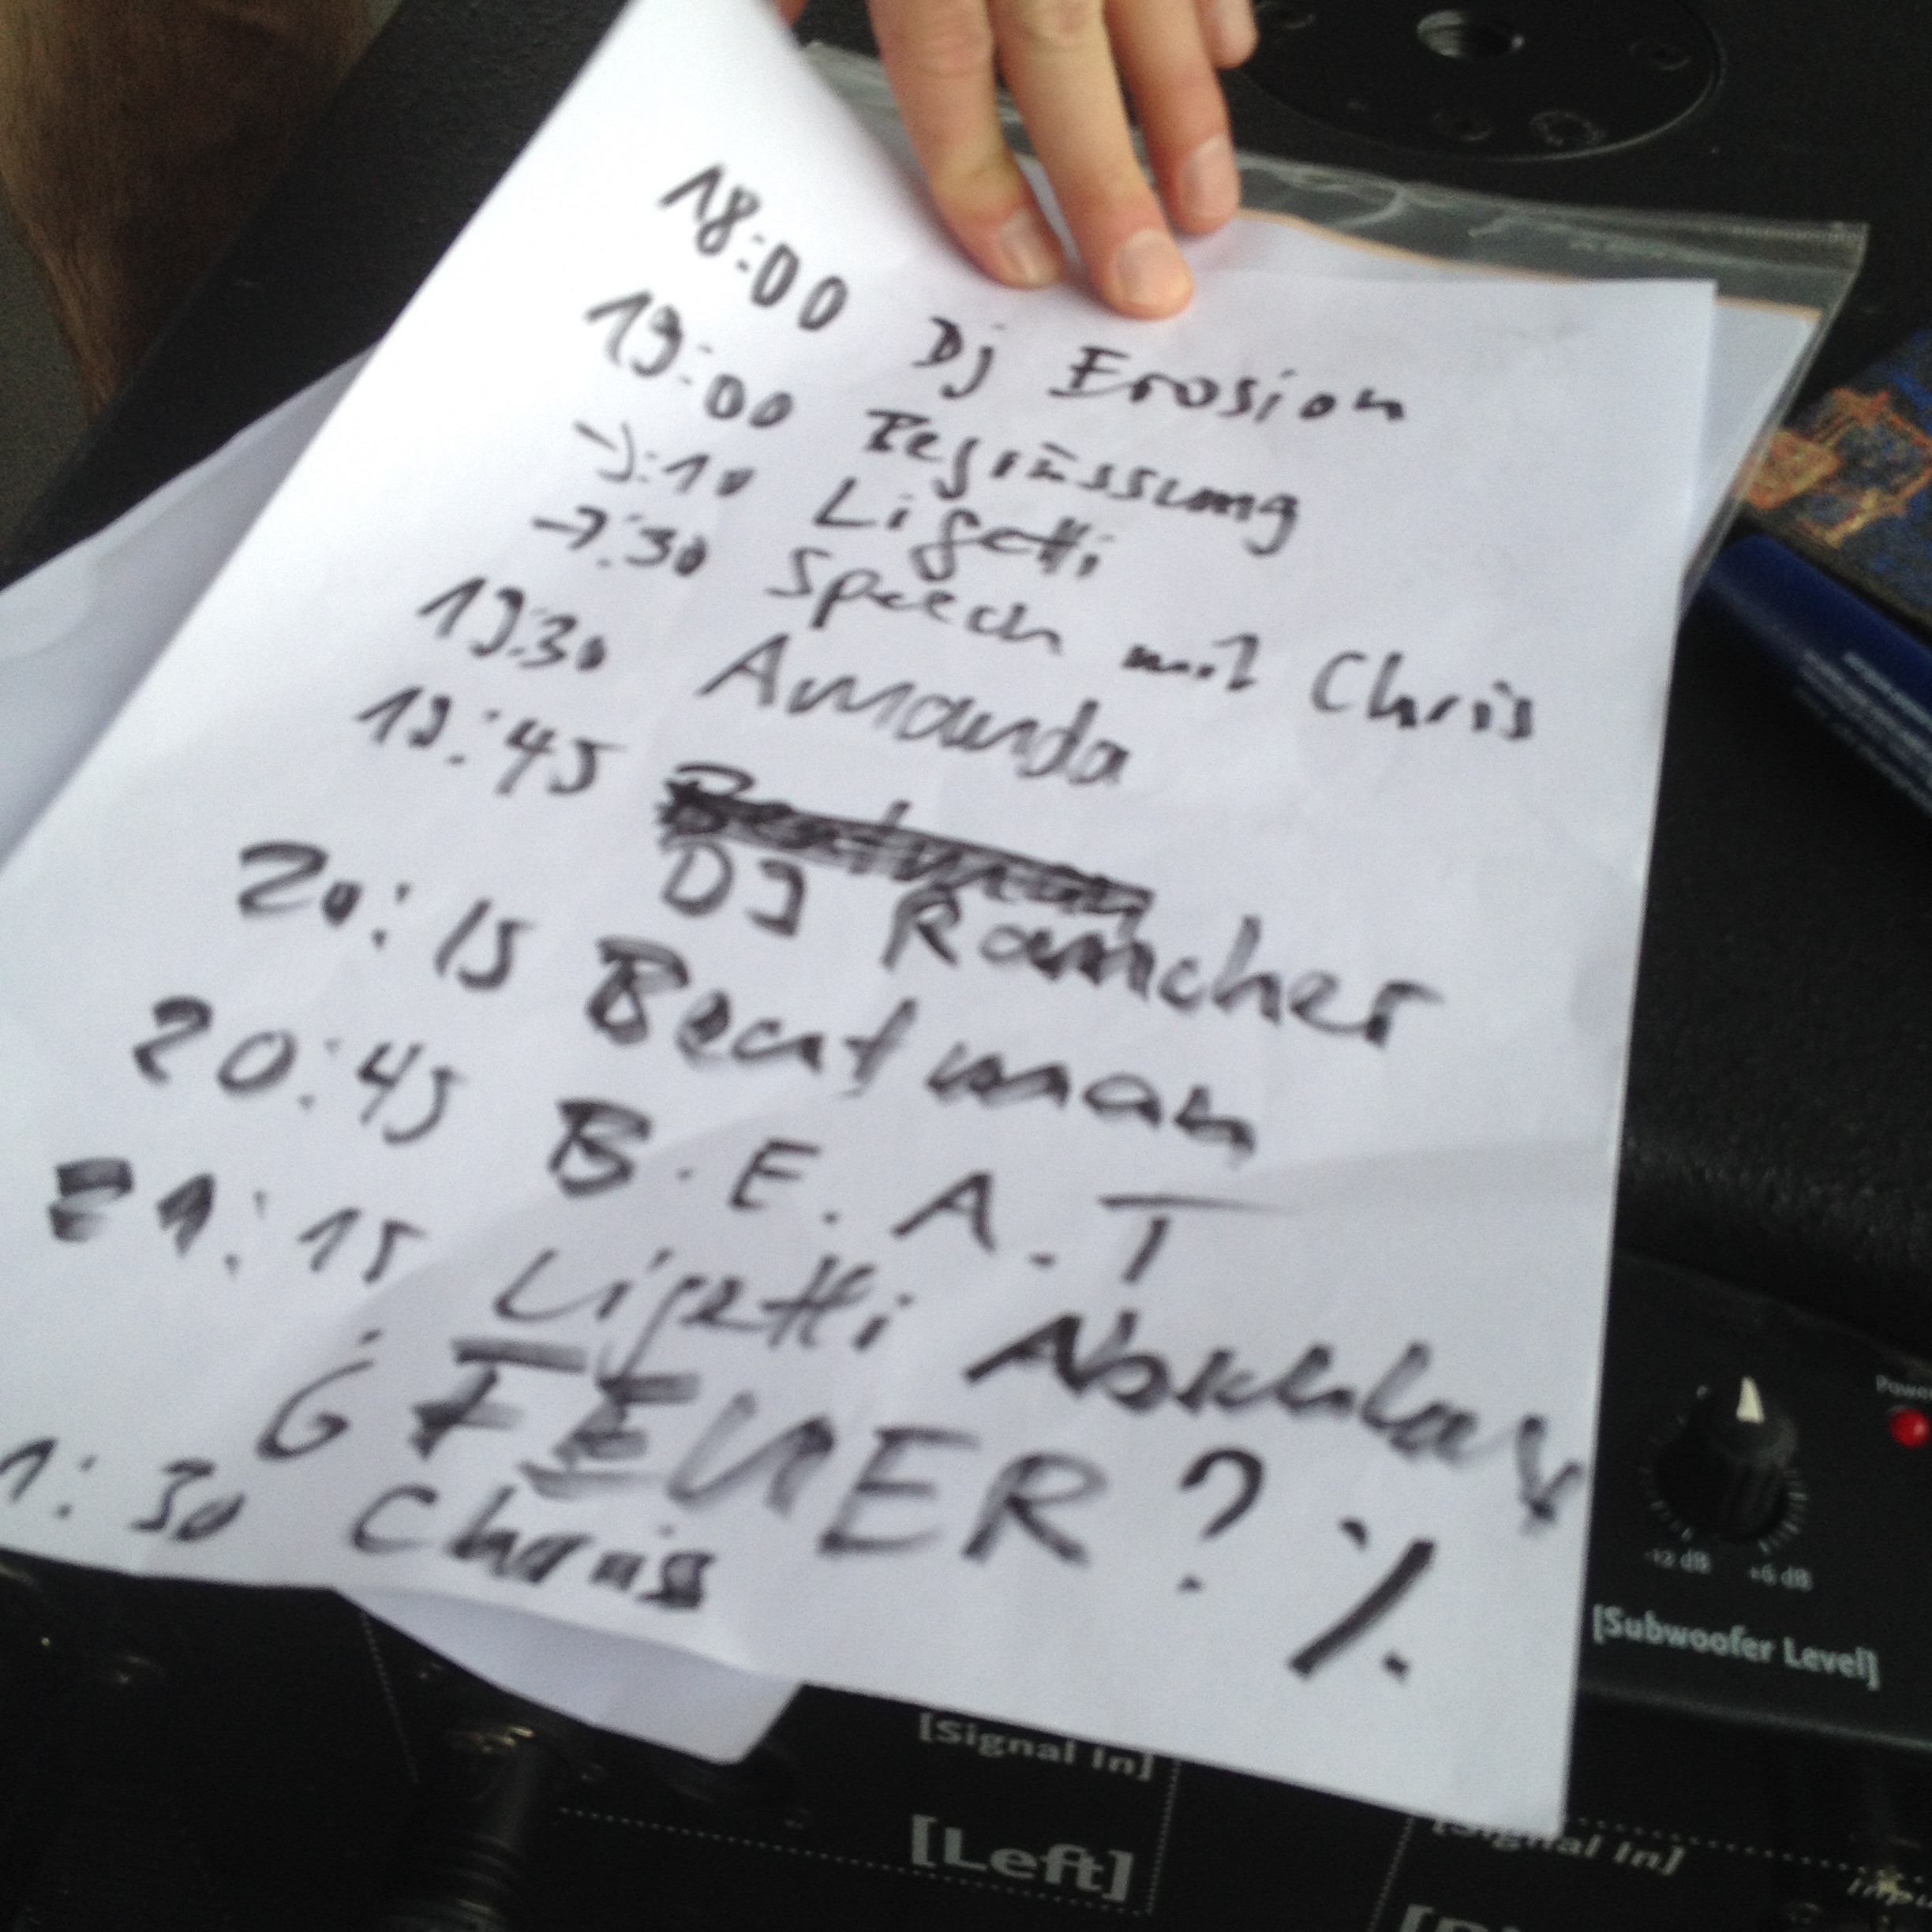 18:00 Dj Erosion
19:00 Begrüssung
→:10 Ligetti
→:30 Speech mit Chris
19:30 Amanda
19:45 Beatman
DJ Rancher
20:15 Beatman
20:45 B.E.A.T
21:15 Ligetti Abschluss
¿ FEUER? ⁒
1:30 Chris
Power
-12 dB +6 dB
[Subwoofer Level]
[Signal In]
[Left]
[Signal In]